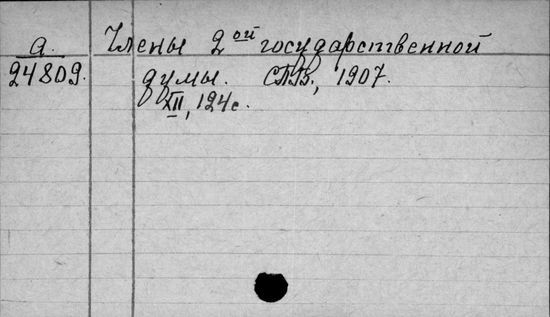 а. Члены 2ой государственной
24809. думы. СПБ., 1907.
XII, 124с.